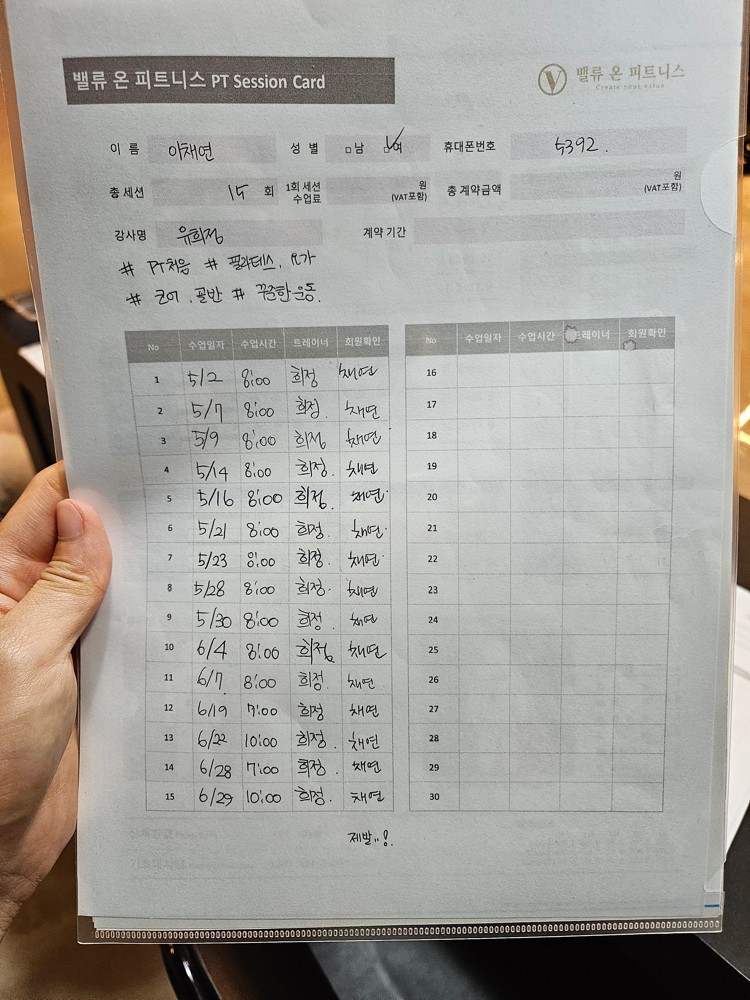 밸류 온 피트니스 PT Session Card
밸류 온 피트니스
Create your value
이 름 이채연 성 별 □남 □여 휴대폰번호 5392.
총 세션 15 회 1회 세션 수업료 원 (VAT포함) 총 계약금액 원 (VAT포함)
강사명 유희정 계약 기간
# PT처음 # 필라테스, 요가
# 코어, 골반 # 꾸준한 운동.
No 수업일자 수업시간 트레이너 회원확인 No 수업일자 수업시간 트레이너 회원확인
1 5/2 8:00 희정 채연 16
2 5/7 8:00 희정. 채연 17
3 5/9 8:00 희정 채연 18
4 5/14 8:00 희정. 채연 19
5 5/16 8:00 희정. 채연. 20
6 5/21 8:00 희정. 채연. 21
7 5/23 8:00 희정. 채연. 22
8 5/28 8:00 희정. 채연 23
9 5/30 8:00 희정. 채연 24
10 6/4 8:00 희정. 채연 25
11 6/7 8:00 희정. 채연 26
12 6/19 7:00 희정 채연 27
13 6/22 10:00 희정. 채연 28
14 6/28 7:00 희정. 채연 29
15 6/29 10:00 희정. 채연 30
제발..!.